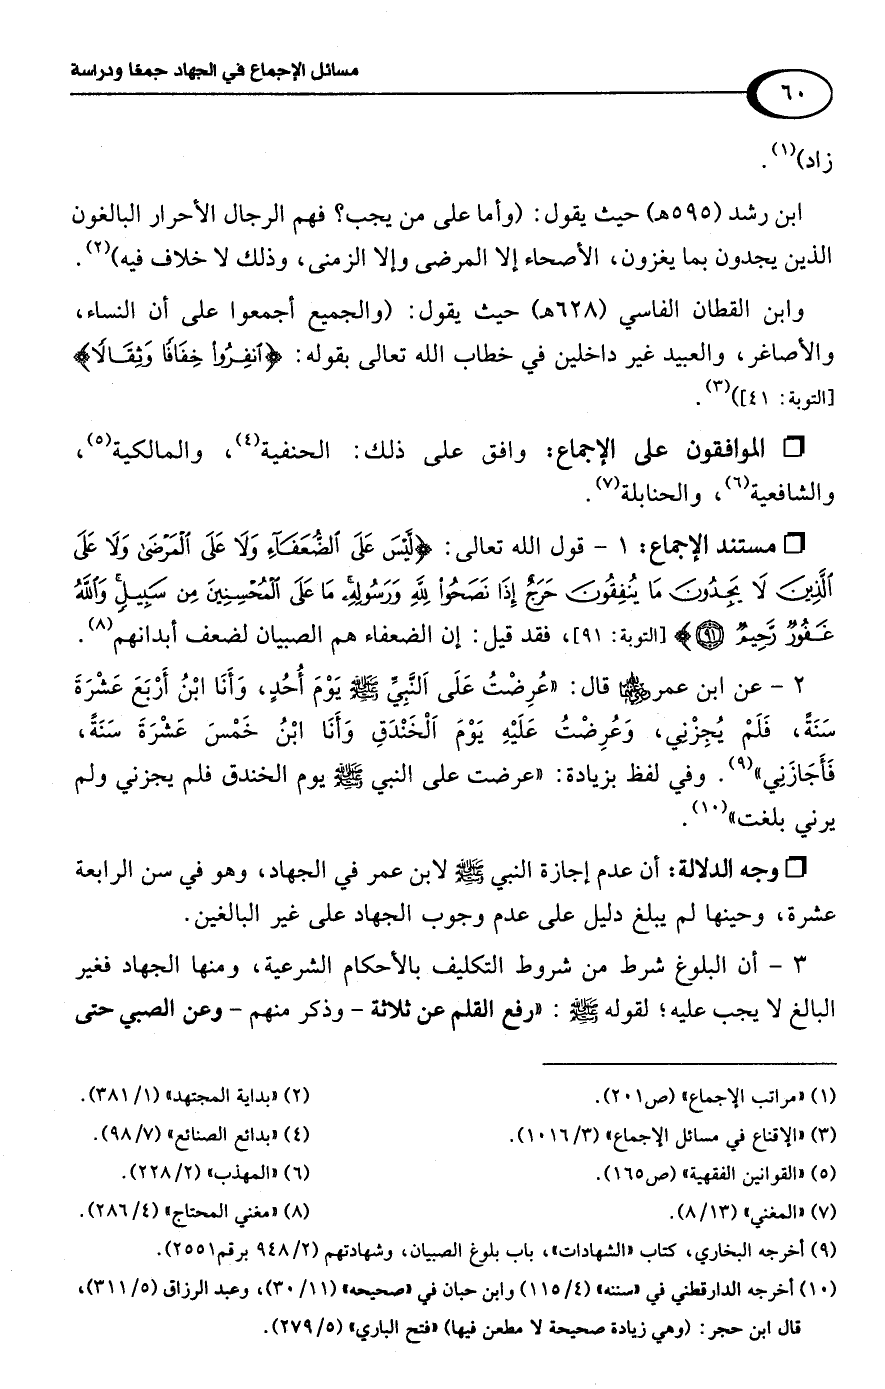 مسائل الإجماع في الجهاد جمعًا ودراسة
٦٠
زاد)(١).
ابن رشد (٥٩٥هـ) حيث يقول: (وأما على من يجب؟ فهم الرجال الأحرار البالغون
الذين يجدون بما يغزون، الأصحاء إلا المرضى وإلا الزمنى، وذلك لا خلاف فيه)(٢).
وابن القطان الفاسي (٦٢٨هـ) حيث يقول: (والجميع أجمعوا على أن النساء،
والأصاغر، والعبيد غير داخلين في خطاب الله تعالى بقوله: ﴿ٱنفِرُواْ خِفَافٗا وَثِقَالٗا﴾
[التوبة: ٤١])(٣).
❒ الموافقون على الإجماع: وافق على ذلك: الحنفية(٤)، والمالكية(٥)،
والشافعية(٦)، والحنابلة(٧).
❒ مستند الإجماع: ١ - قول الله تعالى: ﴿لَّيْسَ عَلَى ٱلضُّعَفَآءِ وَلَا عَلَى ٱلْمَرْضَىٰ وَلَا عَلَى
ٱلَّذِينَ لَا يَجِدُونَ مَا يُنفِقُونَ حَرَجٌ إِذَا نَصَحُواْ لِلَّهِ وَرَسُولِهِۦۚ مَا عَلَى ٱلْمُحْسِنِينَ مِن سَبِيلٖۚ وَٱللَّهُ
غَفُورٞ رَّحِيمٞ ٩١﴾ [التوبة: ٩١]، فقد قيل: إن الضعفاء هم الصبيان لضعف أبدانهم(٨).
٢ - عن ابن عمر رضي الله عنهما قال: «عُرِضْتُ عَلَى ٱلنَّبِيِّ ﷺ يَوْمَ أُحُدٍ، وَأَنَا ابْنُ أَرْبَعَ عَشْرَةَ
سَنَةً، فَلَمْ يُجِزْنِي، وَعُرِضْتُ عَلَيْهِ يَوْمَ ٱلْخَنْدَقِ وَأَنَا ابْنُ خَمْسَ عَشْرَةَ سَنَةً،
فَأَجَازَنِي»(٩). وفي لفظ بزيادة: «عرضت على النبي ﷺ يوم الخندق فلم يجزني ولم
يرني بلغت»(١٠).
❒ وجه الدلالة: أن عدم إجازة النبي ﷺ لابن عمر في الجهاد، وهو في سن الرابعة
عشرة، وحينها لم يبلغ دليل على عدم وجوب الجهاد على غير البالغين.
٣ - أن البلوغ شرط من شروط التكليف بالأحكام الشرعية، ومنها الجهاد فغير
البالغ لا يجب عليه؛ لقوله ﷺ : «رفع القلم عن ثلاثة - وذكر منهم - وعن الصبي حتى
(١) «مراتب الإجماع» (ص٢٠١). (٢) «بداية المجتهد» (١/ ٣٨١).
(٣) «الإقناع في مسائل الإجماع» (٣/ ١٠١٦). (٤) «بدائع الصنائع» (٧/ ٩٨).
(٥) «القوانين الفقهية» (ص١٦٥). (٦) «المهذب» (٢/ ٢٢٨).
(٧) «المغني» (١٣/ ٨). (٨) «مغني المحتاج» (٤/ ٢٨٦).
(٩) أخرجه البخاري، كتاب «الشهادات»، باب بلوغ الصبيان، وشهادتهم (٢/ ٩٤٨ برقم٢٥٥١).
(١٠) أخرجه الدارقطني في «سننه» (٤/ ١١٥) وابن حبان في «صحيحه» (١١/ ٣٠)، وعبد الرزاق (٥/ ٣١١)،
قال ابن حجر: (وهي زيادة صحيحة لا مطعن فيها) «فتح الباري» (٥/ ٢٧٩).